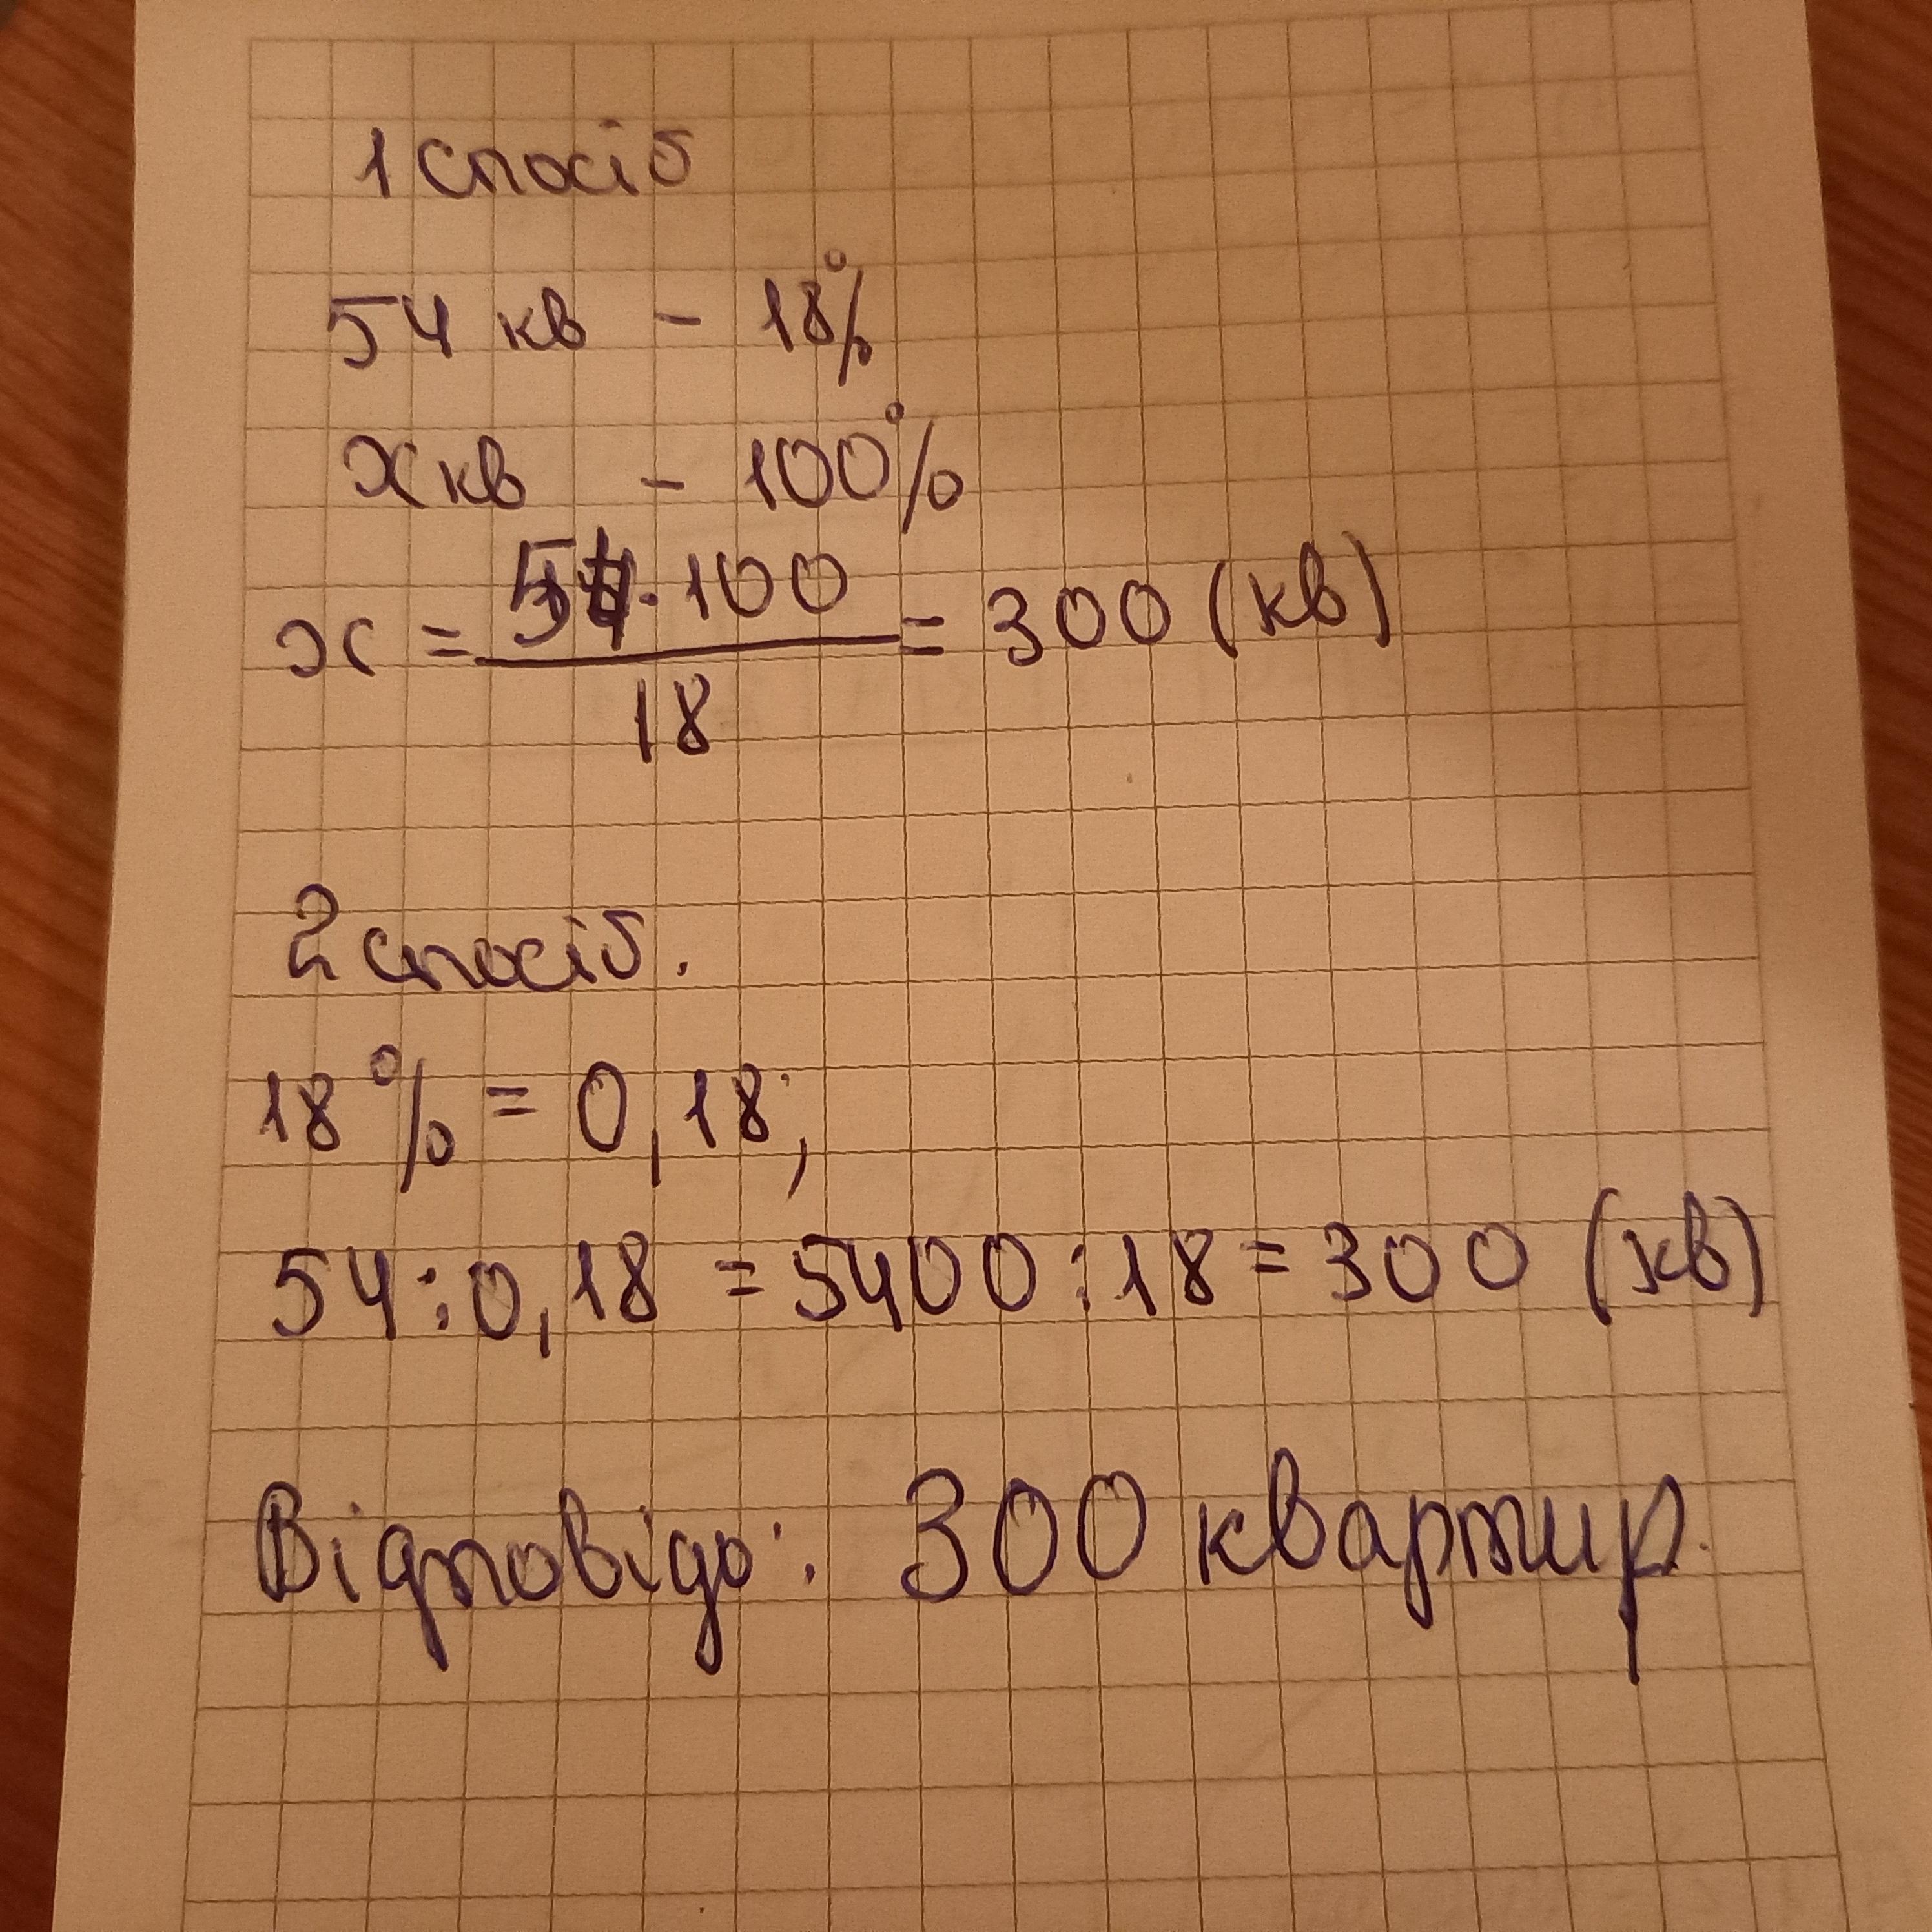 1 спосіб
54 кв - 18%
x кв - 100%
x = 54·100/18 = 300 (кв)
2 спосіб.
18% = 0,18;
54:0,18 = 5400:18 = 300 (кв)
Відповідь: 300 квартир.